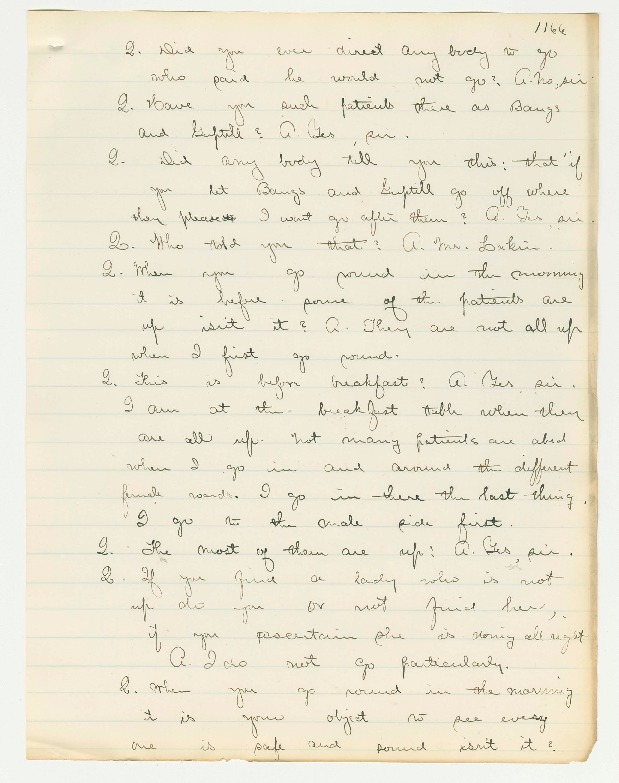 1166
Q. Did you ever direct any body to go
who said he would not go? A. No, sir.
Q. Have you such patients there as Bangs
and Guptill? A. Yes, sir.
Q. Did any body tell you this: that "if
you let Bangs and Guptill go off where
they please I wont go after them? A. Yes sir.
Q. Who told you that? A. Mr. Lakin.
Q. When you go round in the morning
it is before some of the patients are
up isn't it? A. They are not all up
when I first go round.
Q. This is before breakfast? A. Yes, sir.
I am at the breakfast table when they
are all up. Not many patients are abed
when I go in and around the different
female wards. I go in there the last thing.
I go to the male side first.
Q. The most of them are up? A. Yes, sir.
Q. If you find a lady who is not
up do you or not find her,
if you ascertain she is doing all right
A. I do not go particularly.
Q. When you go round in the morning
it is your object to see every
one is safe and sound isn't it?